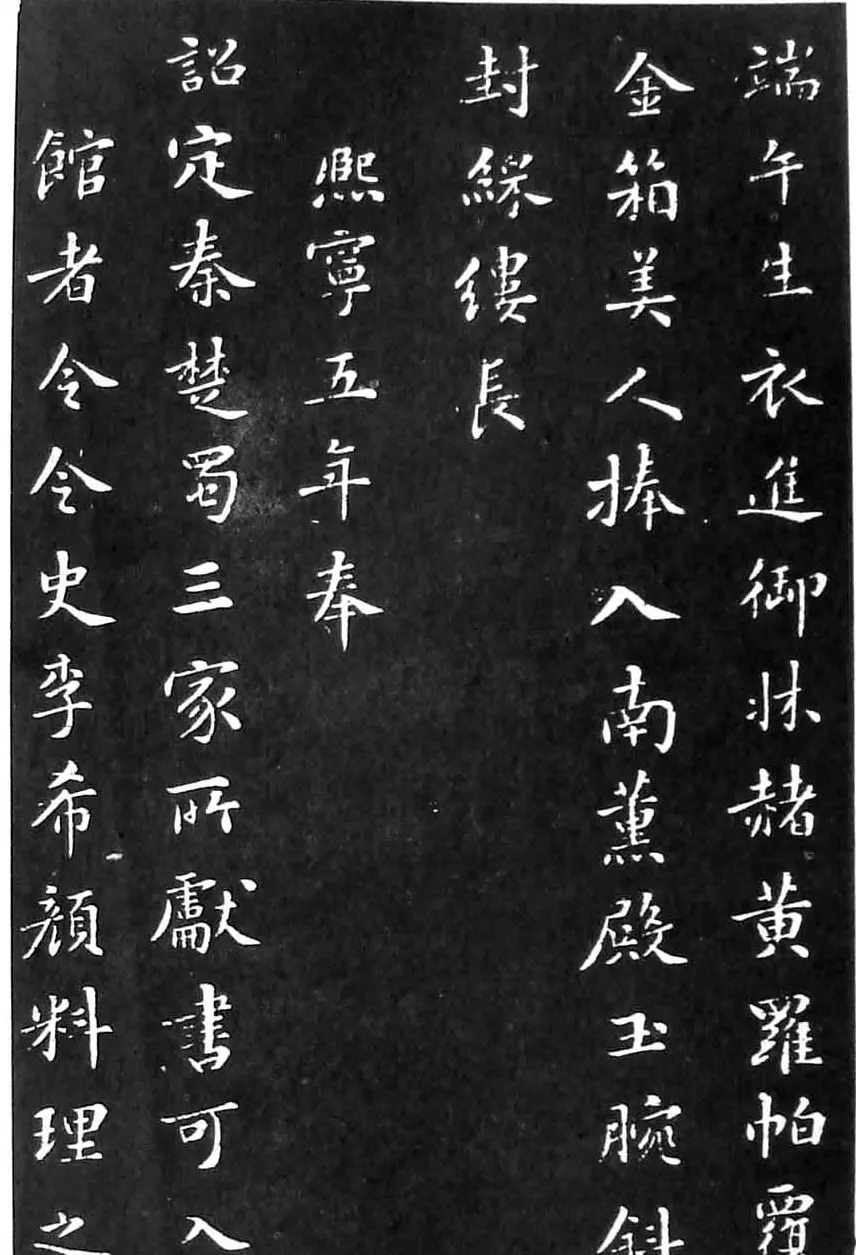 端午生衣進御牀赭黄羅帕覆
金箱美人捧入南薰殿玉腕斜
封綵縷長
熙寧五年奉
詔定秦楚蜀三家所獻書可入
館者令令史李希顔料理之